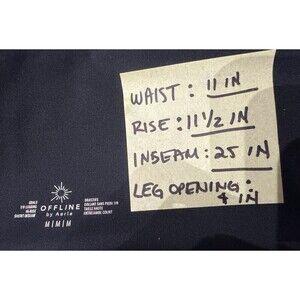 WAIST: 11 IN
RISE: 11 1/2 IN
INSEAM: 25 IN
LEG OPENING:
4 IN
OFFLINE
by Aerie
M|M|M